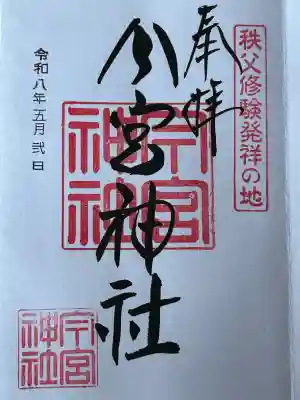 秩父修験発祥の地
奉拝
今宮神社
今宮
神社
令和八年五月弐日
今宮
神社